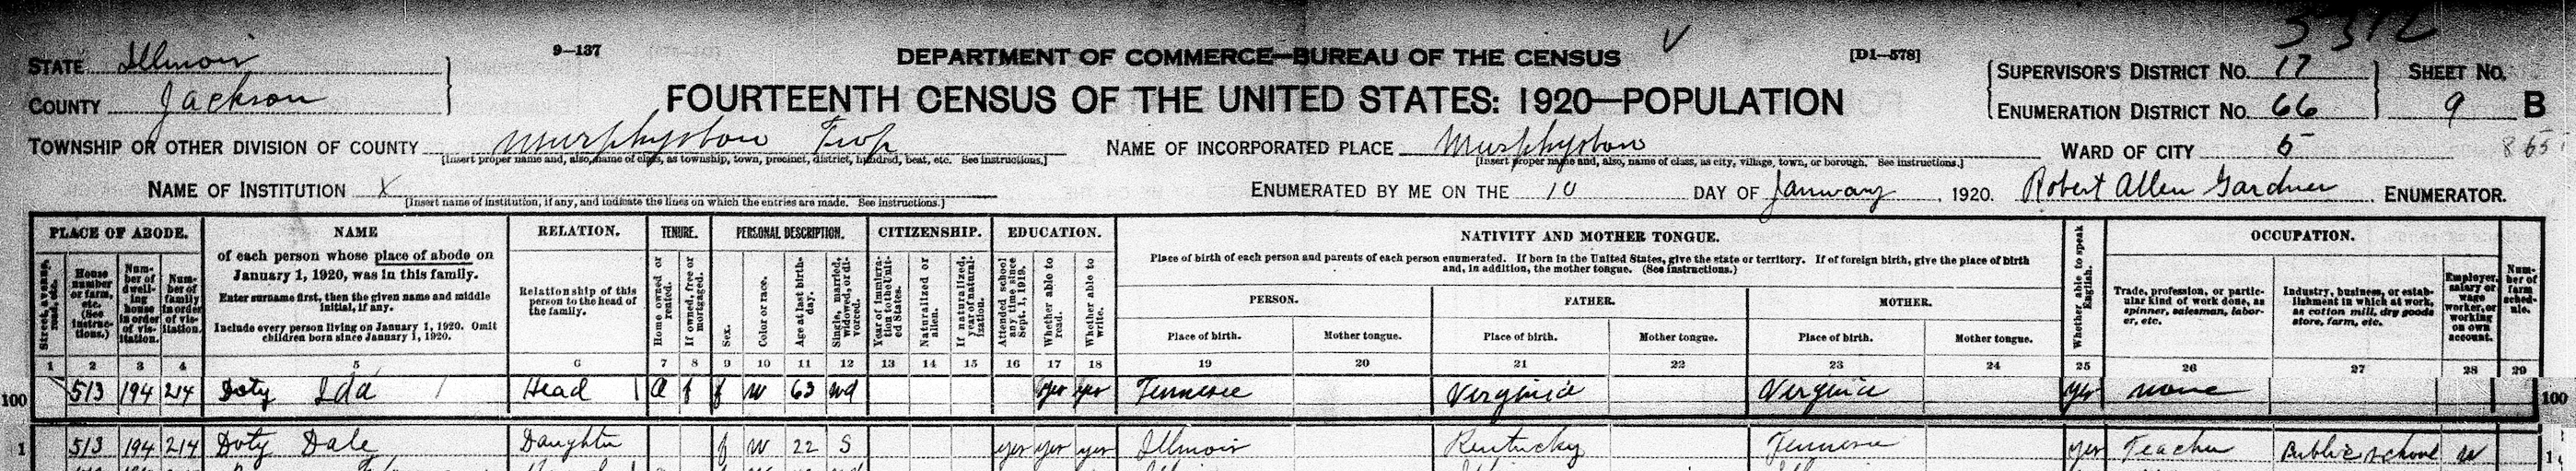 5312
STATE Illinois
9—137
DEPARTMENT OF COMMERCE—BUREAU OF THE CENSUS
[D1—578]
COUNTY Jackson
FOURTEENTH CENSUS OF THE UNITED STATES: 1920—POPULATION
SUPERVISOR'S DISTRICT NO. 17
SHEET NO.
ENUMERATION DISTRICT NO. 66
9 B
TOWNSHIP OR OTHER DIVISION OF COUNTY Murphysboro Twp
[Insert proper name and, also, name of class, as township, town, precinct, district, hundred, beat, etc. See instructions.]
NAME OF INCORPORATED PLACE Murphysboro
[Insert proper name and, also, name of class, as city, village, town, or borough. See instructions.]
WARD OF CITY 5
865
NAME OF INSTITUTION X
[Insert name of institution, if any, and indicate the lines on which the entries are made. See instructions.]
ENUMERATED BY ME ON THE 10 DAY OF January, 1920. Robert Allen Gardner ENUMERATOR.
PLACE OF ABODE.
Street, avenue, road, etc.
House number or farm, etc. (See instructions.)
Number of dwelling house in order of visitation.
Number of family in order of visitation.
NAME
of each person whose place of abode on
January 1, 1920, was in this family.
Enter surname first, then the given name and middle
initial, if any.
Include every person living on January 1, 1920. Omit
children born since January 1, 1920.
RELATION.
Relationship of this
person to the head of
the family.
TENURE.
Home owned or rented.
If owned, free or mortgaged.
PERSONAL DESCRIPTION.
Sex.
Color or race.
Age at last birthday.
Single, married, widowed, or divorced.
CITIZENSHIP.
Year of immigration to the United States.
Naturalized or alien.
If naturalized, year of naturalization.
EDUCATION.
Attended school any time since Sept. 1, 1919.
Whether able to read.
Whether able to write.
NATIVITY AND MOTHER TONGUE.
Place of birth of each person and parents of each person enumerated. If born in the United States, give the state or territory. If of foreign birth, give the place of birth
and, in addition, the mother tongue. (See instructions.)
PERSON. FATHER. MOTHER.
Place of birth. Mother tongue. Place of birth. Mother tongue. Place of birth. Mother tongue.
Whether able to speak English.
OCCUPATION.
Trade, profession, or particular kind of work done, as spinner, salesman, laborer, etc.
Industry, business, or establishment in which at work, as cotton mill, dry goods store, farm, etc.
Employer, salary or wage worker, or working on own account.
Number of farm schedule.
1 2 3 4 5 6 7 8 9 10 11 12 13 14 15 16 17 18 19 20 21 22 23 24 25 26 27 28 29
100 513 194 214 Doty Ida Head O f f W 63 Wd yes yes Tennessee Virginia Virginia yes none 100
1 513 194 214 Doty Dale Daughter f W 22 S yes yes yes Illinois Kentucky Tennessee yes Teacher Public school W 1